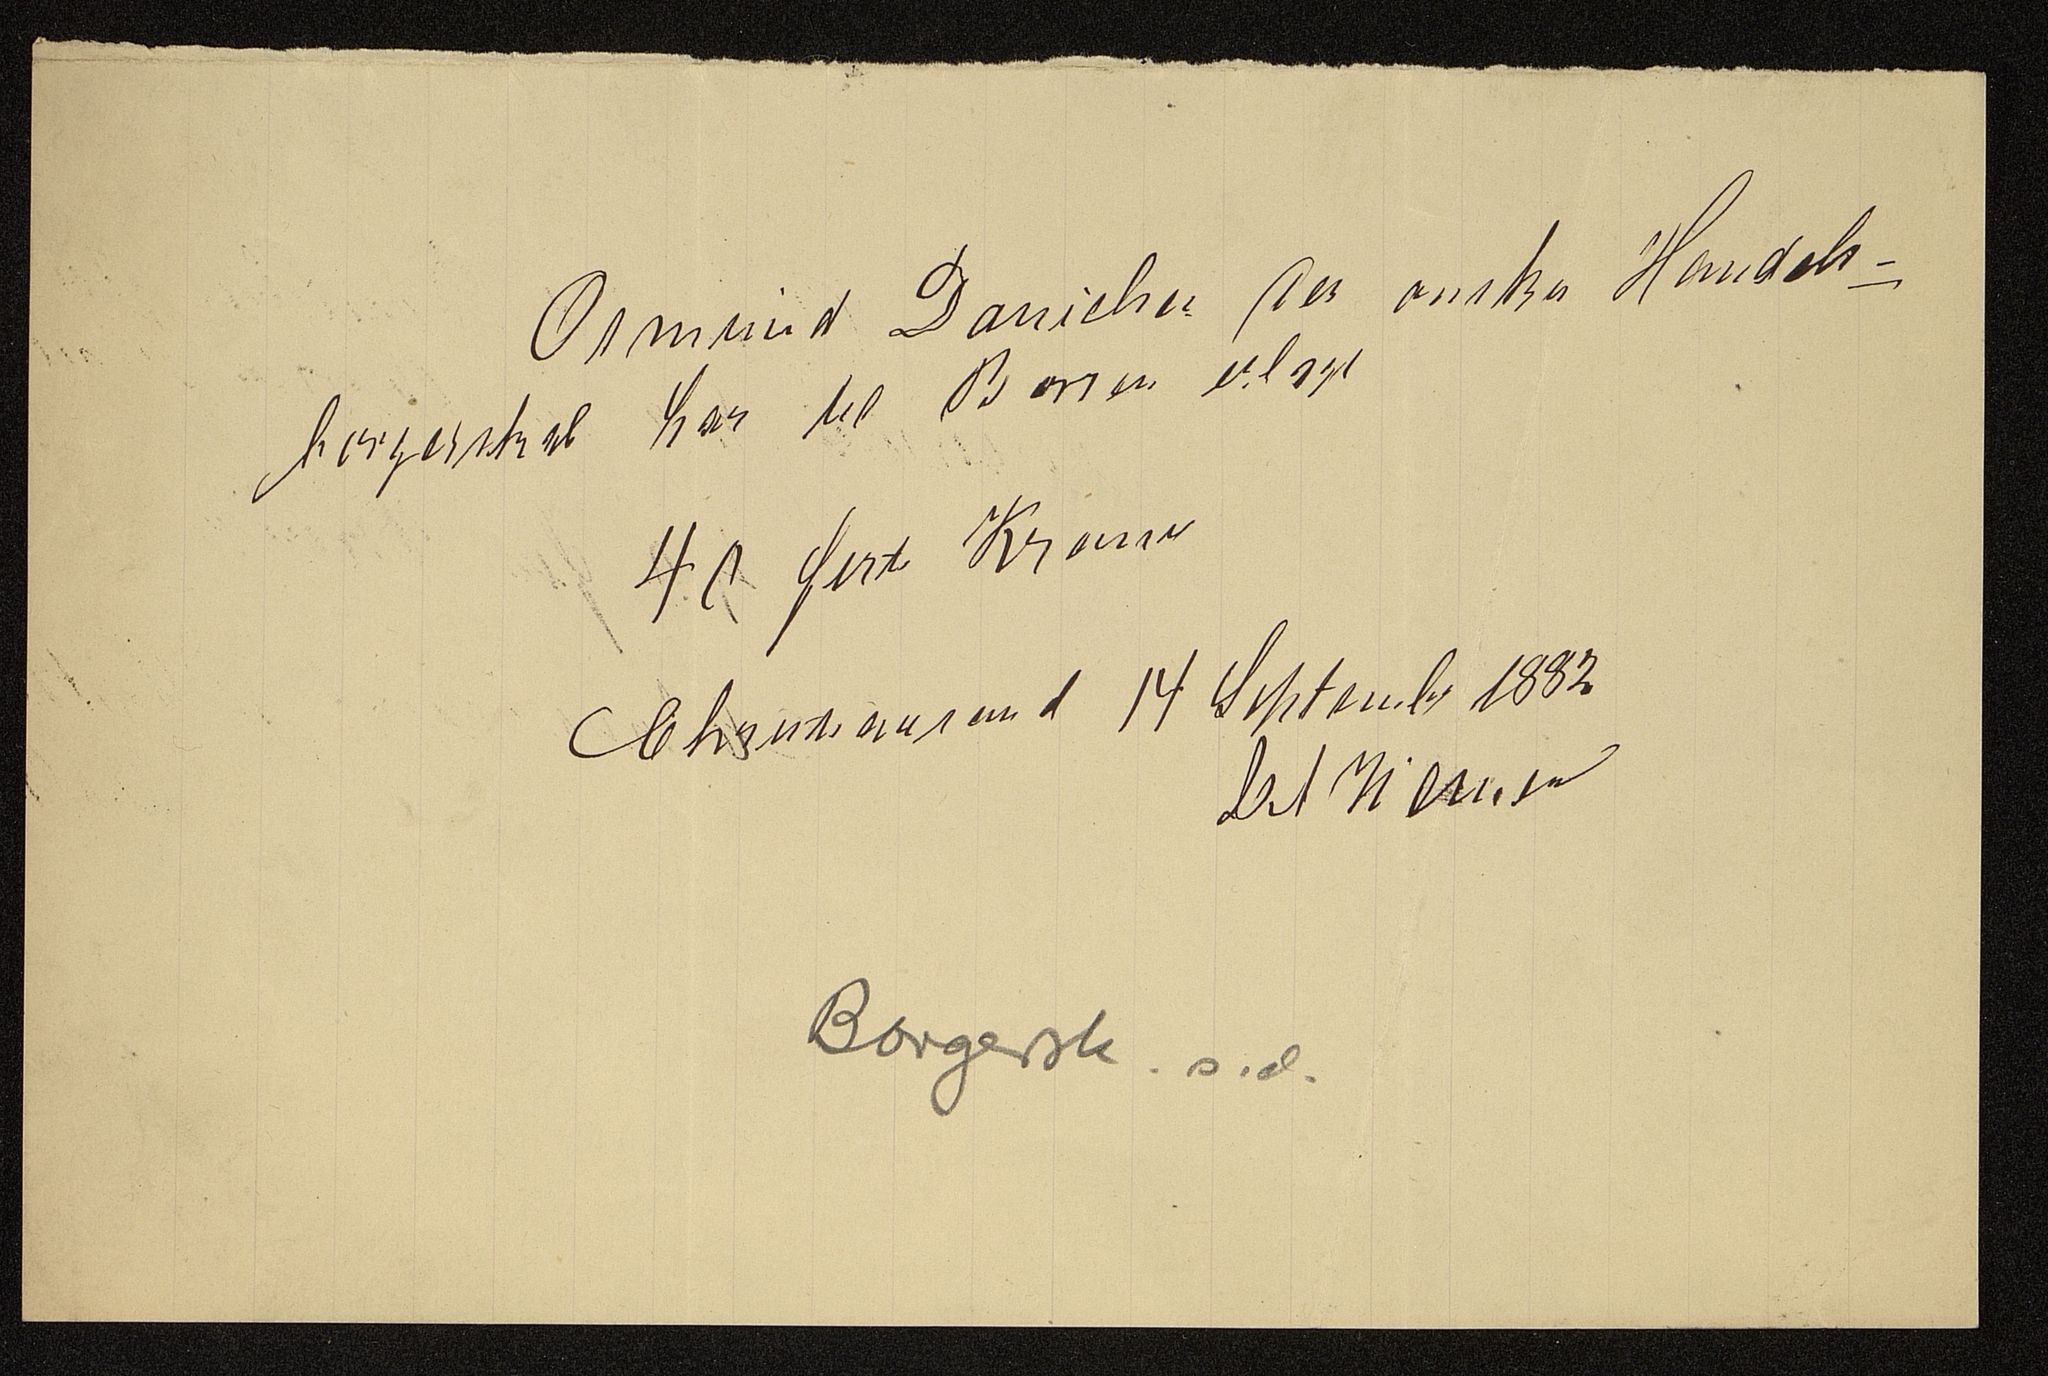 Osmund Danielsen der ønsker Handels-
borgerskab har til Børsen erlagt
40 førti Kroner
Christianssand 14 September 1882
Borgersk. s.d.